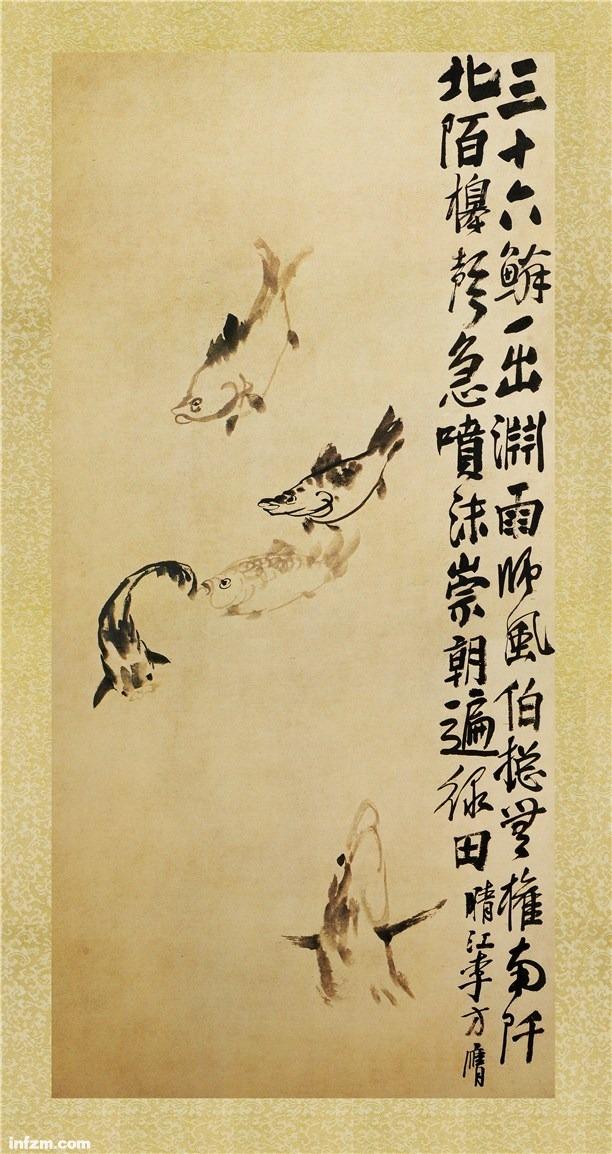 三十六鱗一出淵雨師風伯摠無權南阡
北陌槔聲急噴沫崇朝遍綠田
晴江李方膺
infzm.com